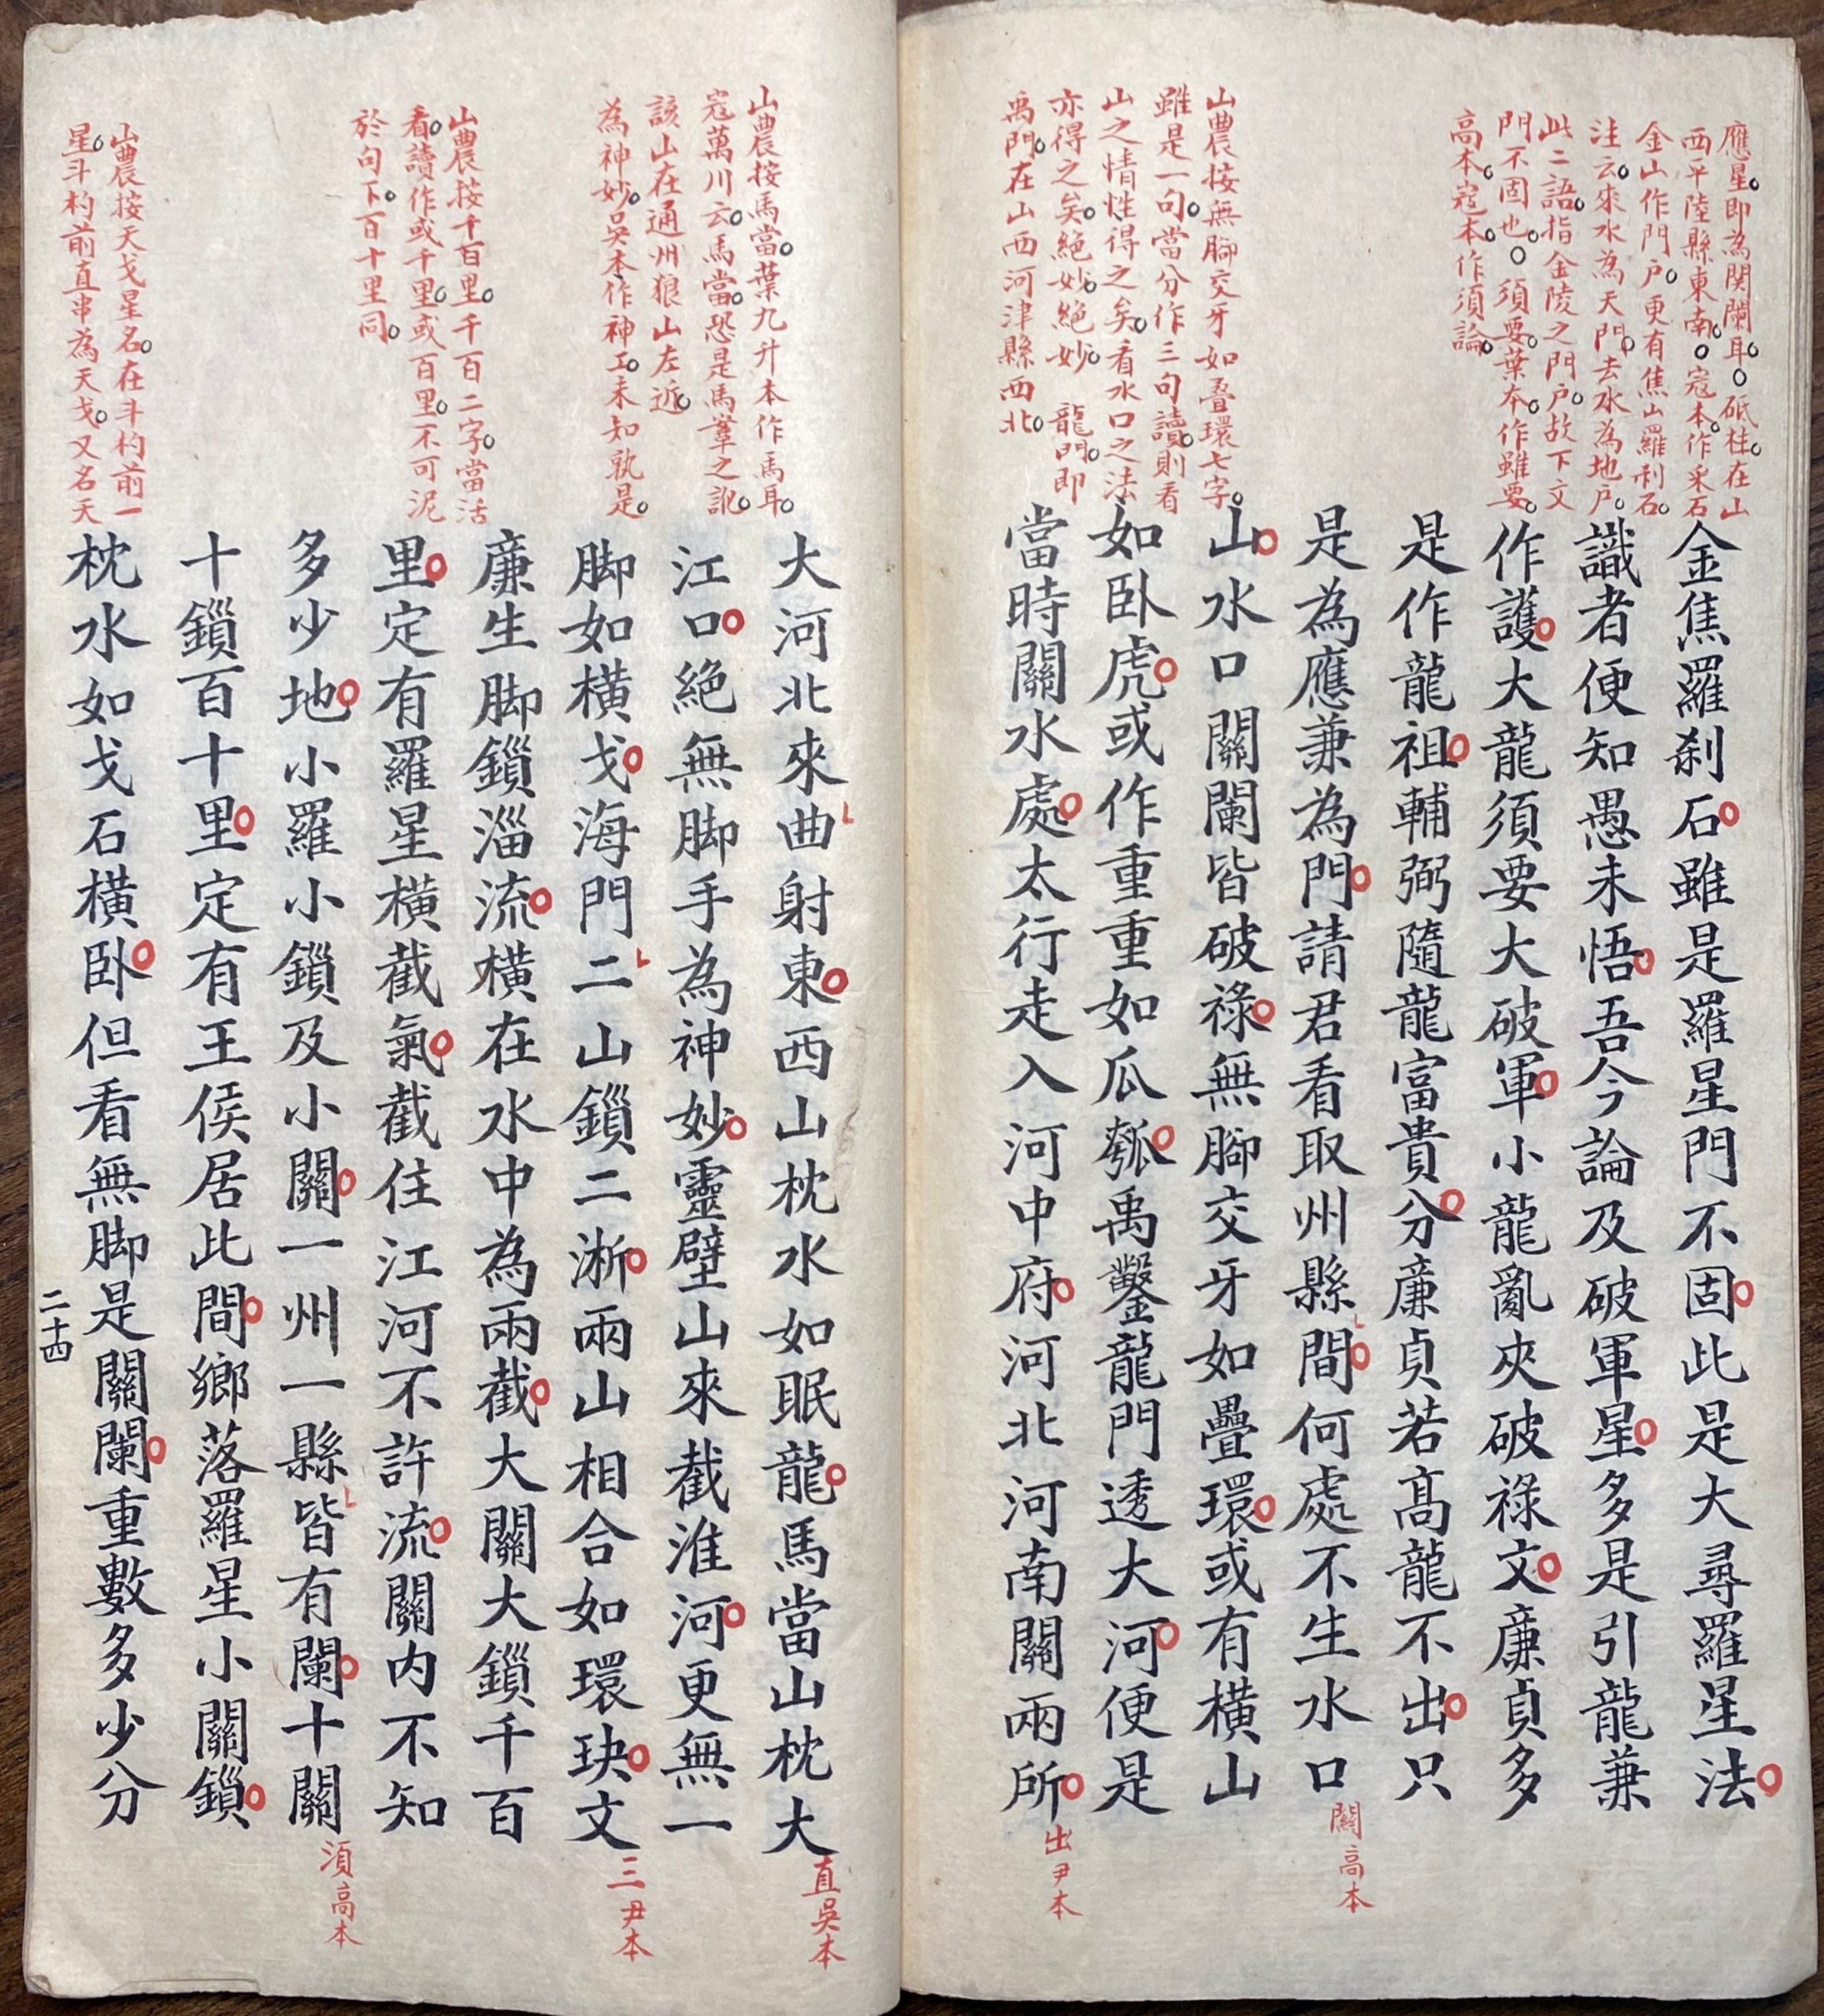 應星即為関闌耳砥柱在山
西平陸縣東南寇本作采石
金山作門户更有焦山羅刹石
注云來水為天門去水為地户
此二語指金陵之門户故下文
門不固也須要葉本作雖要
高本寇本作須論
山農按無腳交牙如疊環七字
雖是一句當分作三句讀則看
山之情性得之矣看水口之法
亦得之矣絕妙絕妙 龍門即
禹門在山西河津縣西北
金焦羅刹石雖是羅星門不固此是大尋羅星法
識者便知愚未悟吾今論及破軍星多是引龍兼
作護大龍須要大破軍小龍亂夾破祿文廉貞多
是作龍祖輔弼隨龍富貴分廉貞若高龍不出只
是為應兼為門請君看取州縣間何處不生水口
關高本
山水口關闌皆破祿無腳交牙如疊環或有橫山
如卧虎或作重重如瓜瓠禹鑿龍門透大河便是
當時關水處太行走入河中府河北河南關兩所
出尹本
山農按馬當葉九升本作馬耳
寇萬川云馬當恐是馬鞌之訛
該山在通州狼山左近
為神妙吳本作神工未知孰是
山農按千百里千百二字當活
看讀作或千里或百里不可泥
於句下百十里同
山農按天戈星名在斗杓前一
星斗杓前直串為天戈又名天
大河北來曲射東西山枕水如眠龍馬當山枕大
直吳本
江口絕無脚手為神妙靈壁山來截淮河更無一
脚如橫戈海門二山鎖二淅兩山相合如環玦文
三尹本
廉生脚鎖淄流橫在水中為兩截大關大鎖千百
里定有羅星橫截氣截住江河不許流關内不知
多少地小羅小鎖及小關一州一縣皆有闌十關
須高本
十鎖百十里定有王侯居此間鄉落羅星小關鎖
枕水如戈石橫卧但看無脚是關闌重數多少分
二十四